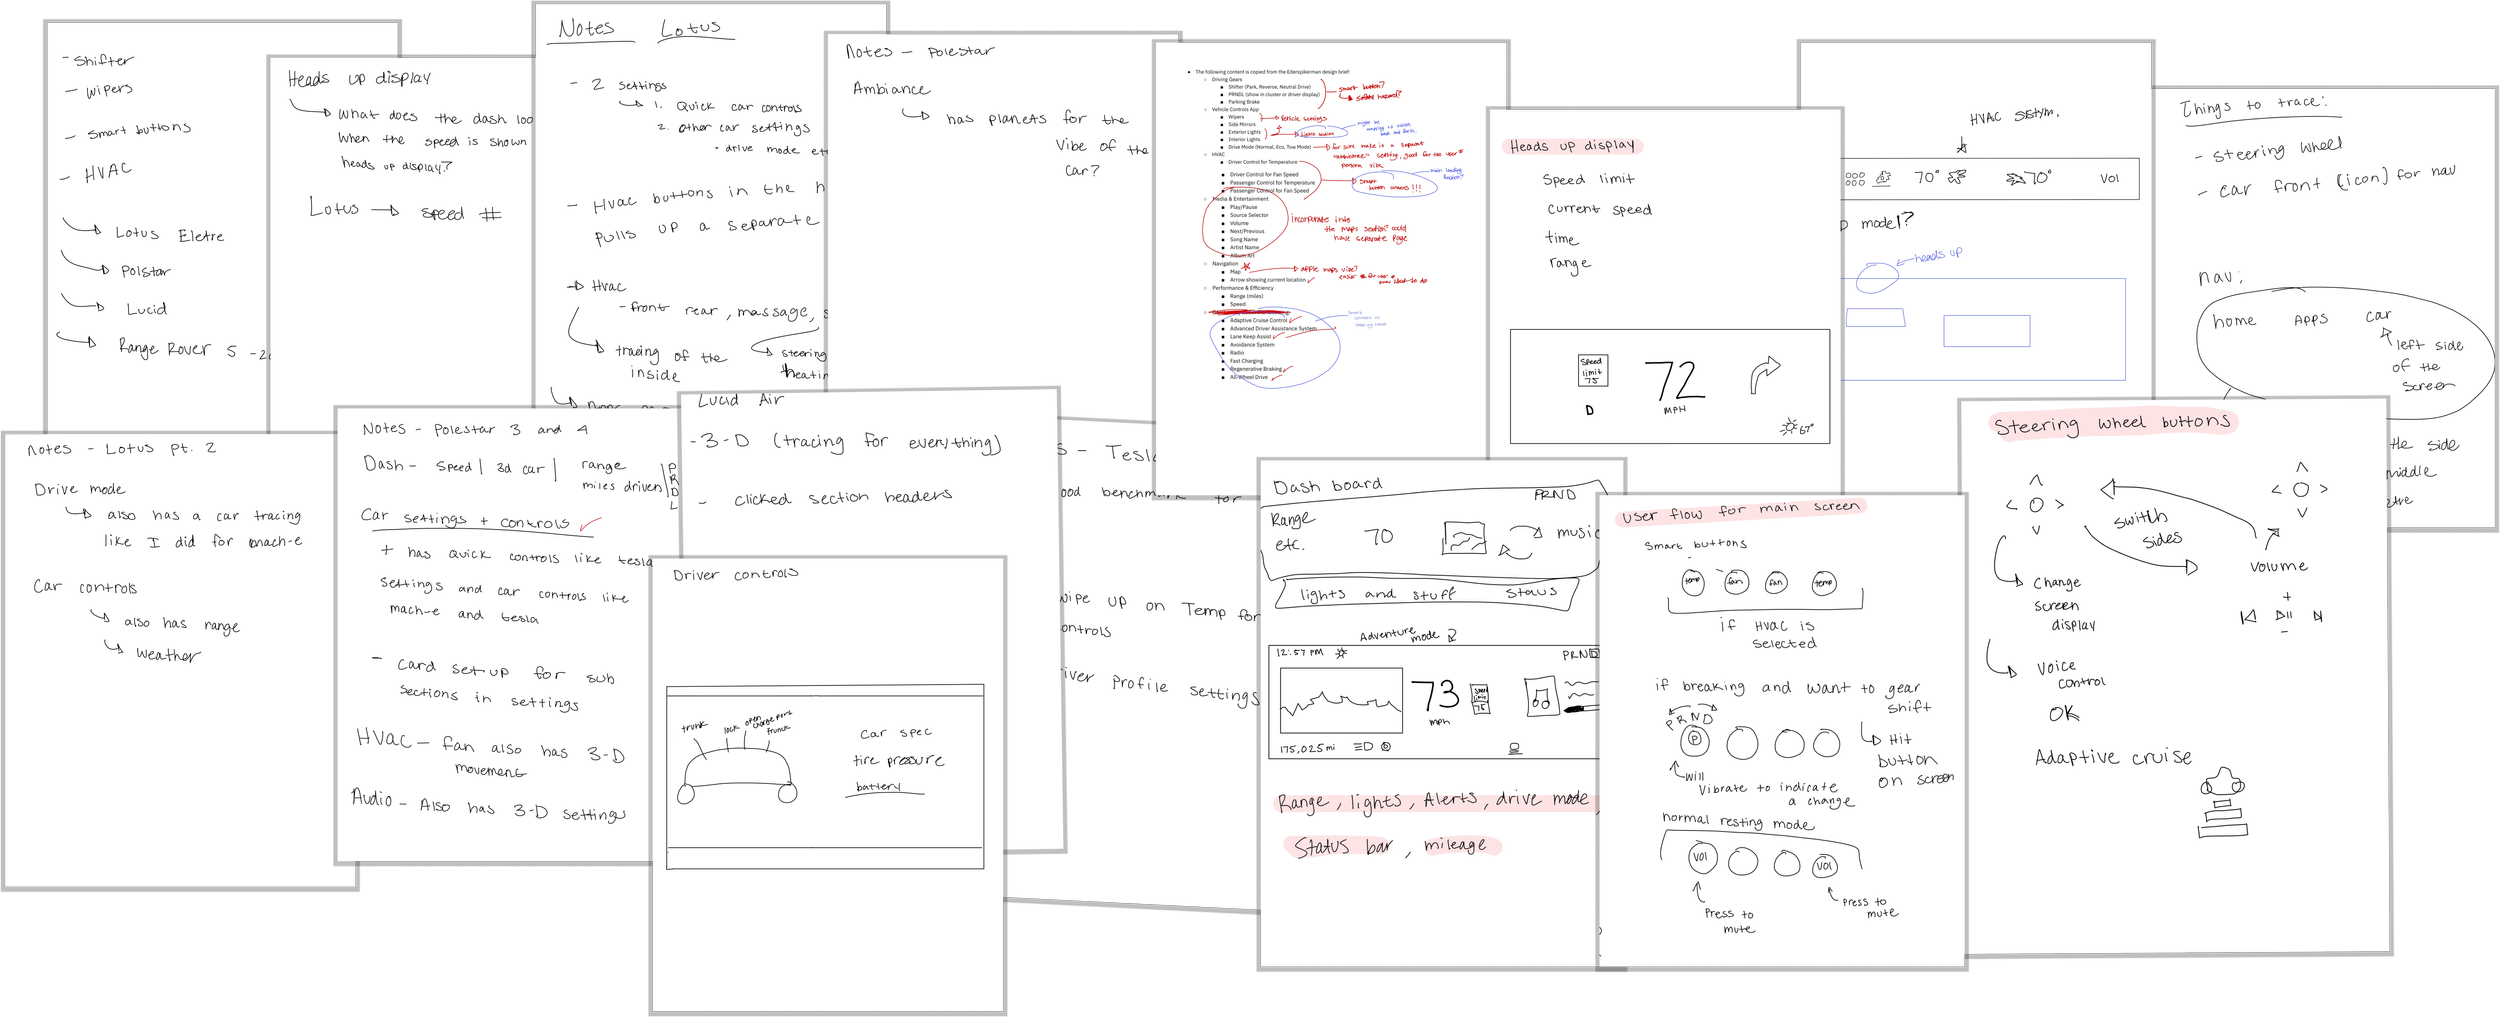 - Shifter
- Wipers
- Smart buttons
- HVAC
Lotus Eletre
Polstar
Lucid
Range Rover 5
Heads up display
What does the dash
When the speed is shown
heads up display?
Lotus → speed #
Notes Lotus
- 2 settings
1. Quick car controls
2. other car settings
- drive mode
- Hvac buttons in the
pulls up a separate
→ Hvac
- front rear, massage,
tracing of the
inside
steering
Notes - Polestar
Ambiance
has planets for the
Vibe of the
Car?
The following content is copied from the Ederspikerman design brief:
Driving Gears
Shifter (Park, Reverse, Neutral Drive)
PRNDL (show in cluster or driver display)
Parking Brake
smart button?
safety hazard?
Vehicle Controls App
Wipers
Side Mirrors
Exterior Lights
Interior Lights
Drive Mode (Normal, Eco, Tow Mode)
Vehicle settings
Lights section
for sure make it a separate
"ambiance" setting, good for the user
persona vibe
HVAC
Driver Control for Temperature
Driver Control for Fan Speed
Passenger Control for Temperature
Passenger Control for Fan Speed
Smart
button connects!!!
Media & Entertainment
Play/Pause
Source Selector
Volume
Next/Previous
Song Name
Artist Name
Album Art
incorporate into
the maps section? could
have separate page
Navigation
Map
Arrow showing current location
apple maps vibe?
Performance & Efficiency
Range (miles)
Speed
Adaptive Cruise Control
Advanced Driver Assistance System
Lane Keep Assist
Avoidance System
Radio
Fast Charging
Regenerative Braking
All-Wheel Drive
Heads up display
Speed limit
current speed
time
range
Speed
limit
75
72
MPH
D
67°
HVAC
70°
70°
Vol
model?
heads up
Things to trace:
- steering wheel
- car front (icon) for nav
nav:
home APPS car
left side
of the
screen
the side
middle
Notes - Lotus pt. 2
Drive mode
also has a car tracing
like I did for mach-e
Car controls
also has range
Weather
Notes - Polestar 3 and 4
Dash - speed | 3d car | range
miles driven
P
R
D
L
Car settings + controls
+ has quick controls like tesla
Settings and car controls like
mach-e and tesla
- card set-up for sub
sections in settings
HVAC - fan also has 3-D
movement
Audio - Also has 3-D settings
Lucid Air
- 3-D (tracing for everything)
- clicked section headers
Driver controls
trunk
lock
open
charge port
frunck
car spec
tire pressure
battery
wipe up on Temp for
river profile settings
Dash board
PRND
Range
etc.
70
music
lights and stuff status
Adventure
mode
12:57 PM
PRND
73
mph
speed
limit
75
175,025mi
Range, lights, Alerts, drive mode
Status bar, mileage
User flow for main screen
Smart buttons
temp fan fan temp
if HVAC is
selected
if breaking and want to gear
shift
PRND
P
Hit
button
on screen
Will
Vibrate to indicate
a change
normal resting mode
VOl VOl
Press to
mute
Press to
mute
Steering wheel buttons
switch
sides
Change
screen
display
Voice
control
OK
Volume
+
-
Adaptive cruise